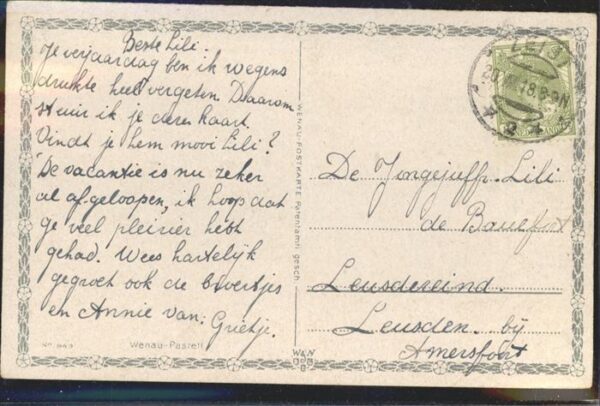 Beste Lili.
Je verjaardag ben ik wegens
drukte heel vergeten. Daarom
stuur ik je deze kaart.
Vindt je hem mooi Lili?
De vacantie is nu zeker
al afgeloopen, ik hoop dat
je veel pleizier hebt
gehad. Wees hartelijk
gegroet ook de broertjes
en Annie van: Grietje.
No. 943
Wenau-Pastell
WENAU-POSTKARTE Patentamtl. gesch.
ZEIST
De Jongejuffr. Lili
de Beaufort
Leusdereind
Leusden. bij
Amersfoort